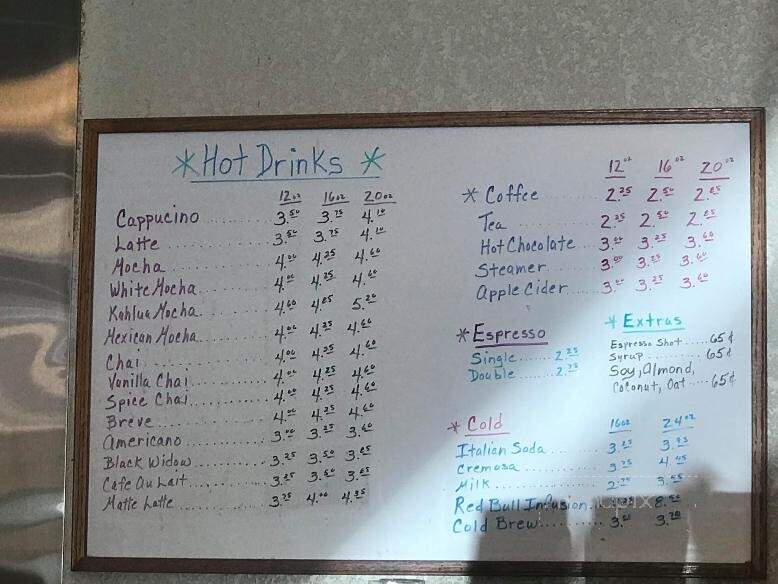 *Hot Drinks *
12oz 16oz 20oz
Cappucino 3.50 3.75 4.10
Latte 3.50 3.75 4.10
Mocha 4.00 4.25 4.60
White Mocha 4.00 4.25 4.60
Kahlua Mocha 4.60 4.85 5.20
Mexican Mocha 4.00 4.25 4.60
Chai 4.00 4.25 4.60
Vanilla Chai 4.00 4.25 4.60
Spice Chai 4.00 4.25 4.60
Breve 4.00 4.25 4.60
Americano 3.00 3.25 3.60
Black Widow 3.25 3.50 3.85
Cafe Au Lait 3.25 3.50 3.85
Matte Latte 3.75 4.00 4.35
12oz 16oz 20oz
* Coffee 2.25 2.50 2.85
Tea 2.25 2.50 2.85
Hot Chocolate 3.00 3.25 3.60
Steamer 3.00 3.25 3.60
Apple Cider 3.00 3.25 3.60
* Espresso
Single 2.25
Double 2.75
* Extras
Espresso Shot 65¢
Syrup 65¢
Soy, Almond,
Coconut, Oat 65¢
* Cold
16oz 24oz
Italian Soda 3.25
Cremosa 3.75 4.45
Milk
Red Bull Infusion 8.50
Cold Brew 3.00 3.70